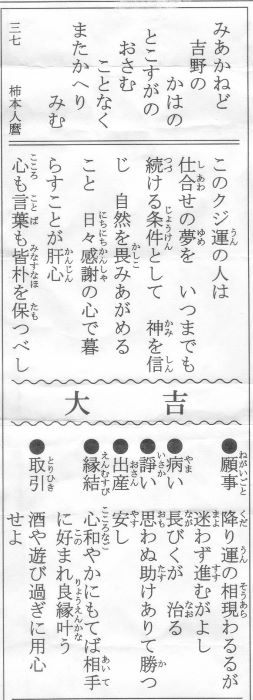 みあかねど
吉野の
かはの
とこすがの
おさむ
ことなく
またかへり
みむ
三七　柿本人麿
このクジ運の人は
仕合せの夢を　いつまでも
続ける条件として　神を信
じ　自然を畏みあがめる
こと　日々感謝の心で暮
らすことが肝心
心も言葉も皆朴を保つべし
大吉
●願事　降り運の相現わるるが
迷わず進むがよし
●病い　長びくが　治る
●諍い　思わぬ助けありて勝つ
●出産　安し
●縁結　心和やかにもてば相手
に好まれ良縁叶う
●取引　酒や遊び過ぎに用心
せよ